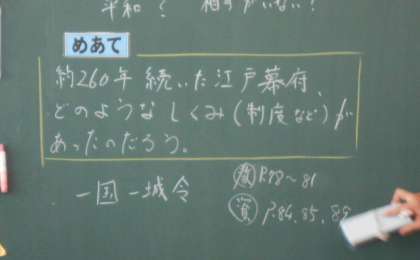 平和？ 相手がいない？
めあて
約260年続いた江戸幕府、
どのようなしくみ(制度など)が
あったのだろう。
一国一城令
教 P.78〜81
資 P.84,85,89